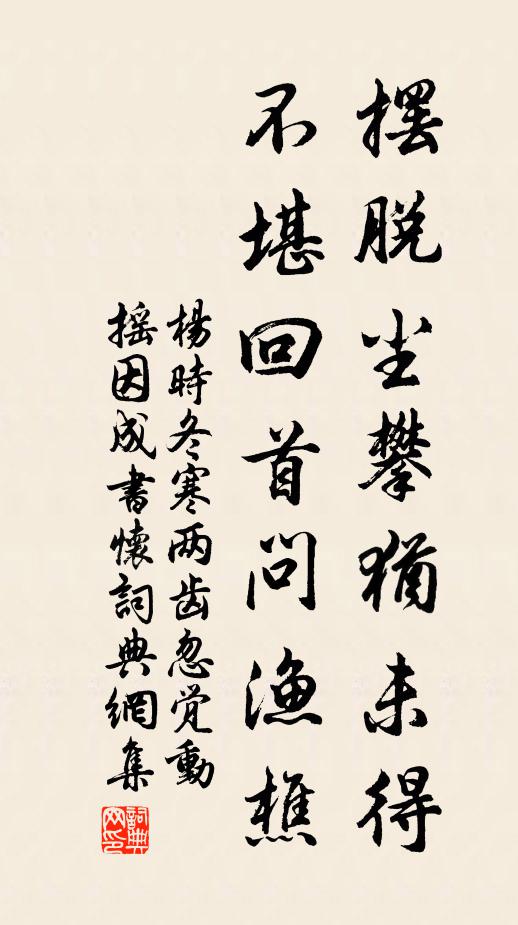 摆脱尘攀犹未得
不堪回首问渔樵
杨時冬寒两齿忽觉動
摇因成書懷詞典網集
詞典網印